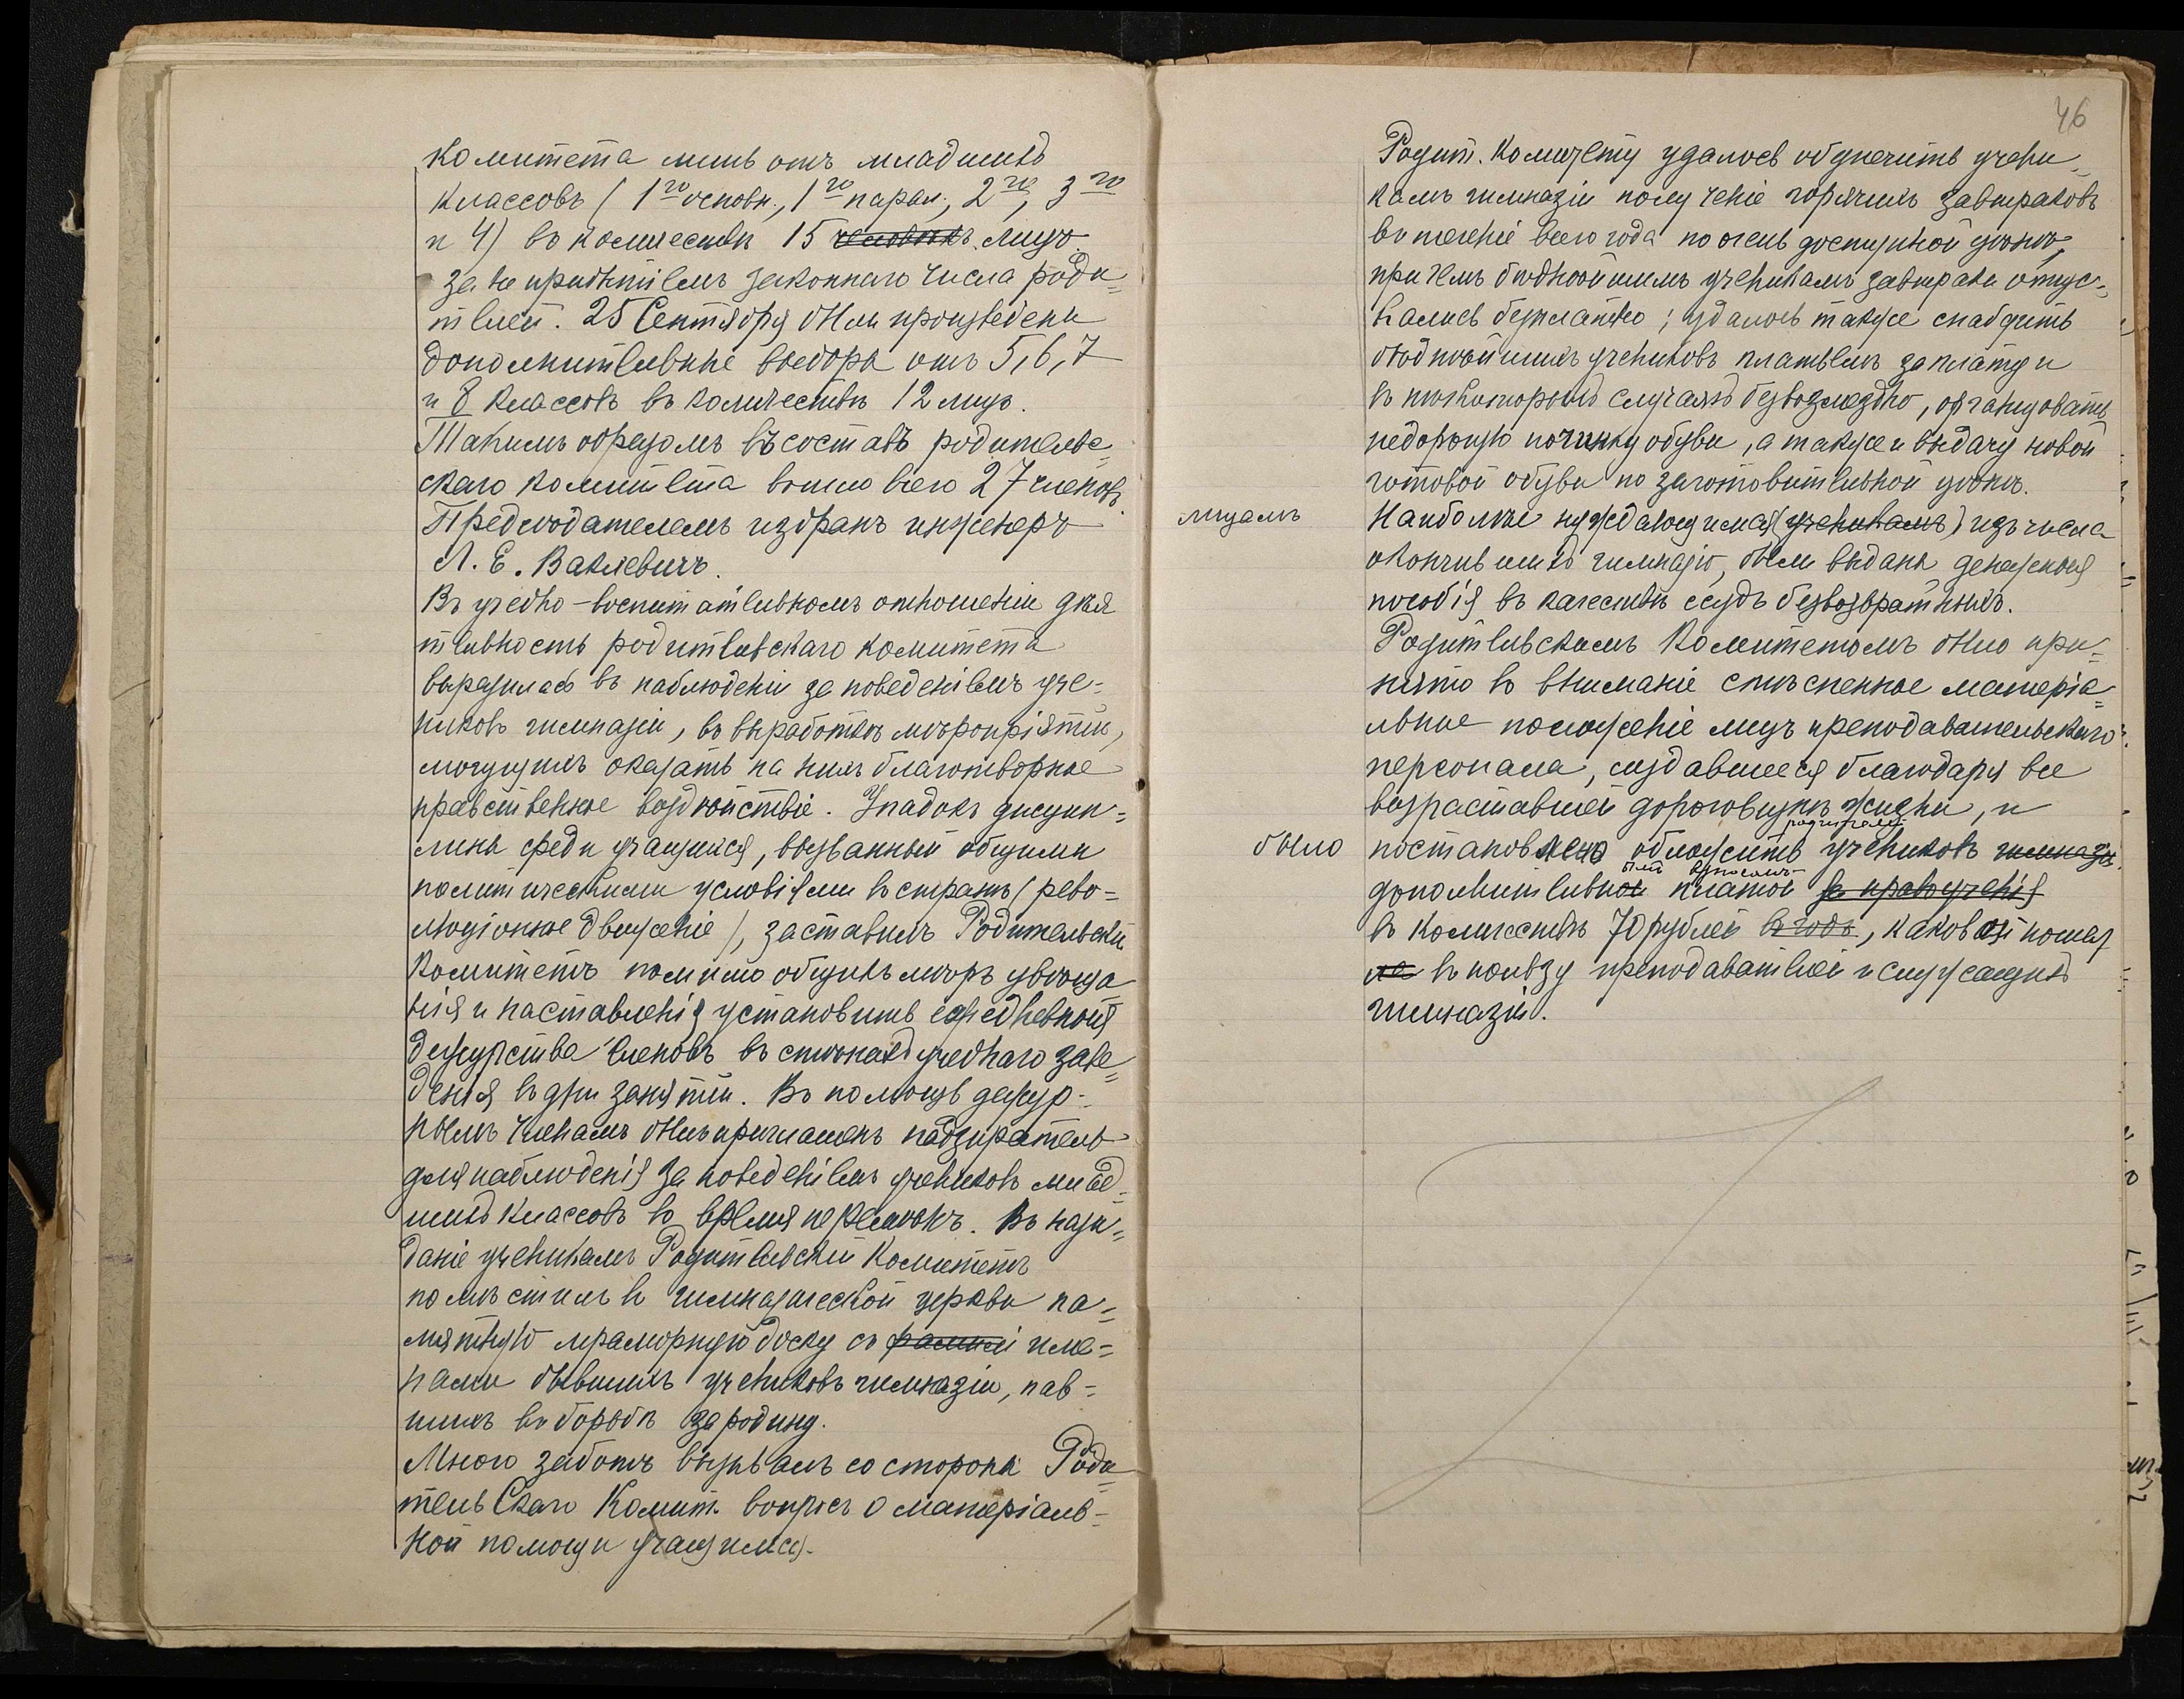 Комитета лишь отъ младшихъ
классовъ (1го основн., 1го парал., 2го, 3го
и 4) въ количествѣ 15 человѣкъ лицъ
за не прибытіемъ законнаго числа роди=
телей. 25 Сентября были произведены
дополнительные выборы отъ 5, 6, 7
и 8 классовъ въ количествѣ 12 лицъ.
Такимъ образомъ въ составъ родительс=
скаго комитета вошло всего 27 членовъ.
Предсѣдателемъ избранъ инженеръ
Л. Е. Ваклевичъ.
Въ учебно-воспитательномъ отношеніи дѣя
тельность родительскаго комитета
выразилась въ наблюденіи за поведеніемъ уче=
никовъ гимназіи, въ выработкѣ мѣропріятій,
могущихъ оказать на нихъ благотворное
нравственное воздѣйствіе. Упадокъ дисцип=
лины среди учащихся, вызванный общими
политическими условіями въ странѣ (рево=
люціонное движеніе), заставилъ Родительскій
Комитетъ помимо общихъ мѣръ увѣща
нія и наставленія установить ежедневныя
дежурства членовъ въ стѣнахъ учебнаго заве=
денія въ дни занятій. Въ помощь дежур-
нымъ членамъ былъ приглашенъ надзиратель
для наблюденія за поведеніемъ учениковъ млад=
шихъ классовъ во время перемѣнъ. Въ нази=
даніе ученикамъ Родительскій Комитетъ
помѣстилъ въ гимназической церкви па=
мятную мраморную доску съ фамилій име=
нами бывшихъ учениковъ гимназіи, пав=
шихъ въ борьбѣ за родину.
Много заботъ вызывалъ со стороны Роди
тельскаго Комит. вопросъ о матеріаль-
ной помощи учащимся.
46
Родит. Комитету удалось обезпечить учени=
камъ гимназіи полученіе горячихъ завтраковъ
въ теченіе всего года по очень доступной цѣнѣ,
при чемъ бѣднѣйшимъ ученикамъ завтраки отпус=
кались безплатно; удалось также снабдить
бѣднѣйшихъ учениковъ платьемъ за плату и
въ нѣкоторыхъ случаяхъ безвозмездно, организовать
недорогую починку обуви, а также и выдачу новой
готовой обуви по заготовительной цѣнѣ.
лицамъ
Наиболѣе нуждающимся (ученикамъ) изъ числа
окончившихъ гимназію, были выданы денежныя
пособія въ качествѣ ссудъ безвозвратныхъ.
Родительскимъ Комитетомъ было при=
нято во вниманіе стѣсненное матеріа=
льное положеніе лицъ преподавательскаго
персонала, создавшееся благодаря все
возраставшей дороговизнѣ жизни, и
родителей
было
постановлено обложить учениковъ гимназіи
взносомъ
дополнительной платой за право ученія
въ количествѣ 70 рублей въ годъ, каковой пошел
ла въ пользу преподавателей и служащихъ
гимназіи.